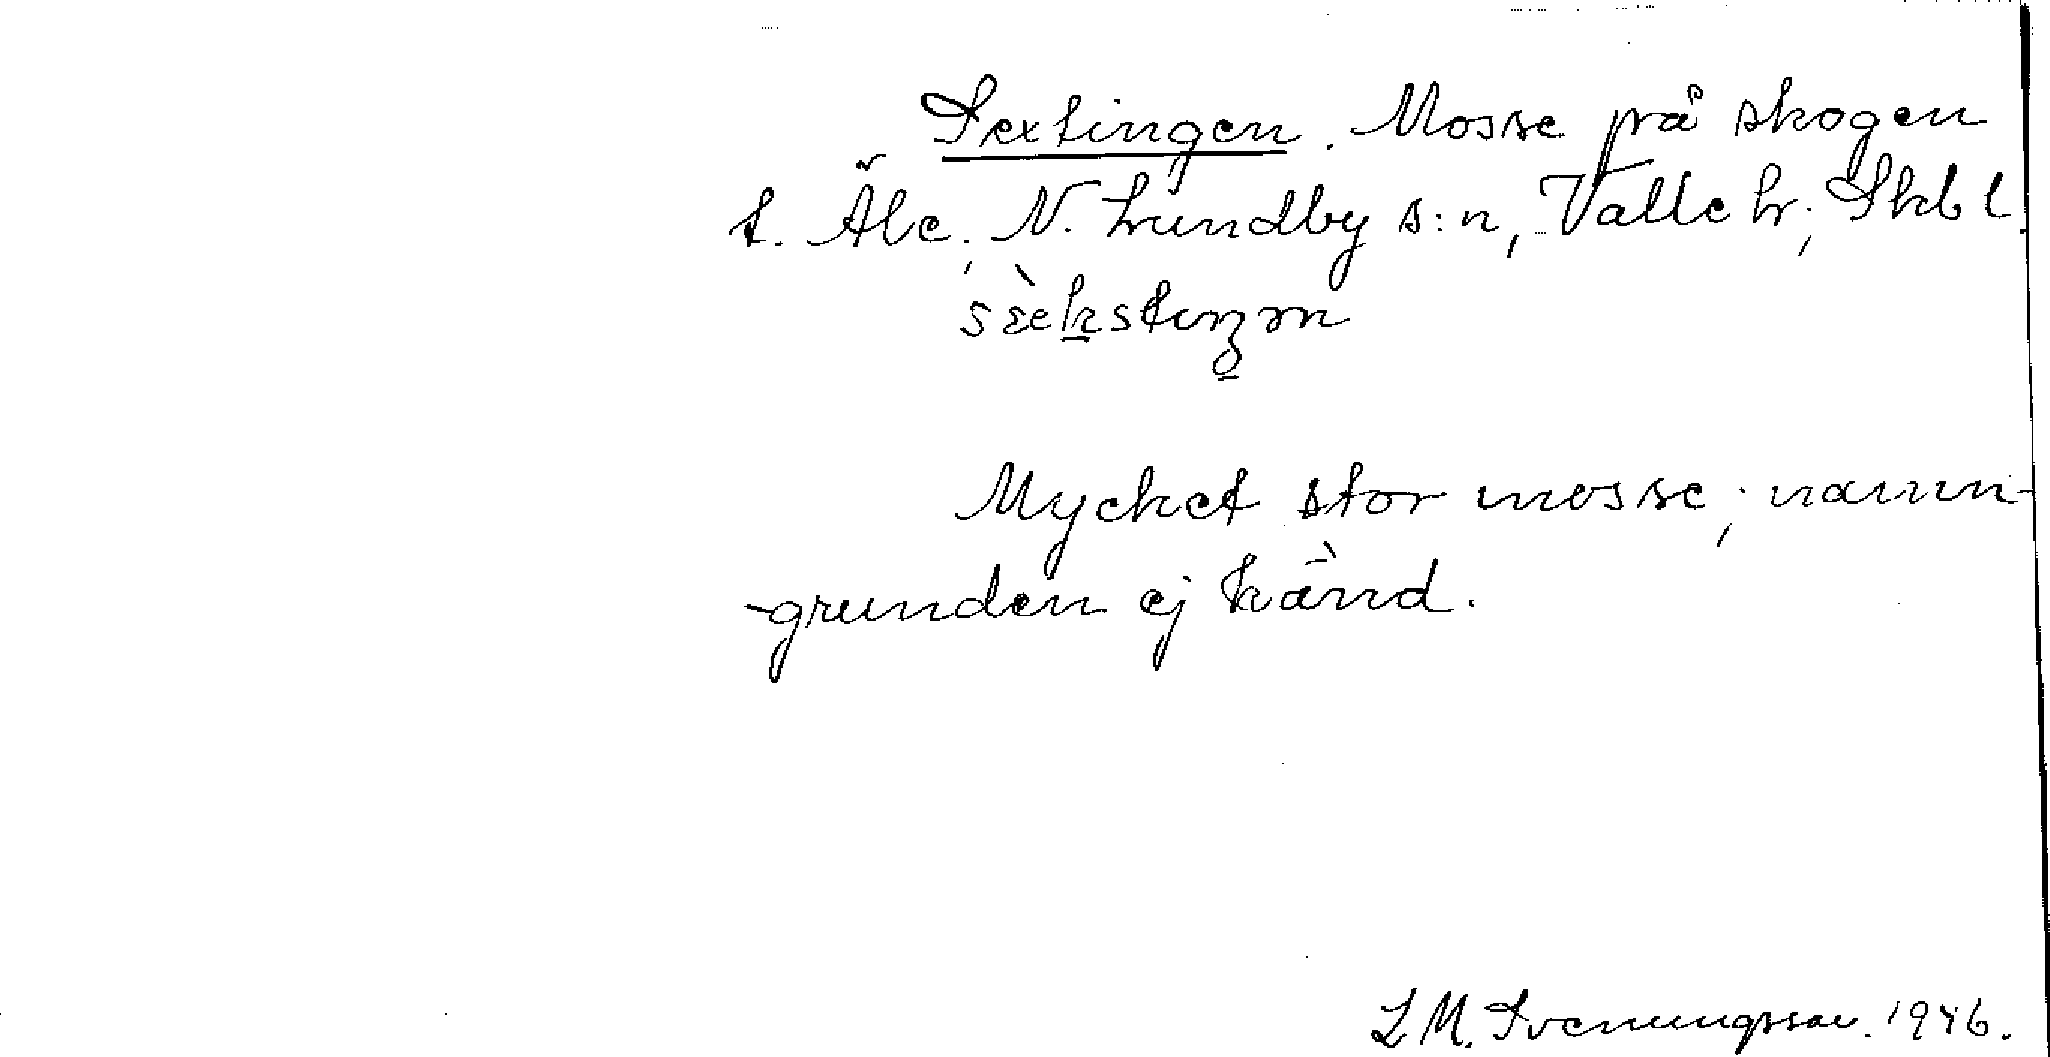 Sextingen. Mosse på skogen
t. Äle; N. Lundby s:n, Valle hr; Skbl.
Mycket stor mosse; namn-
-grunden ej känd.
L M. Svenungsson. 1946.